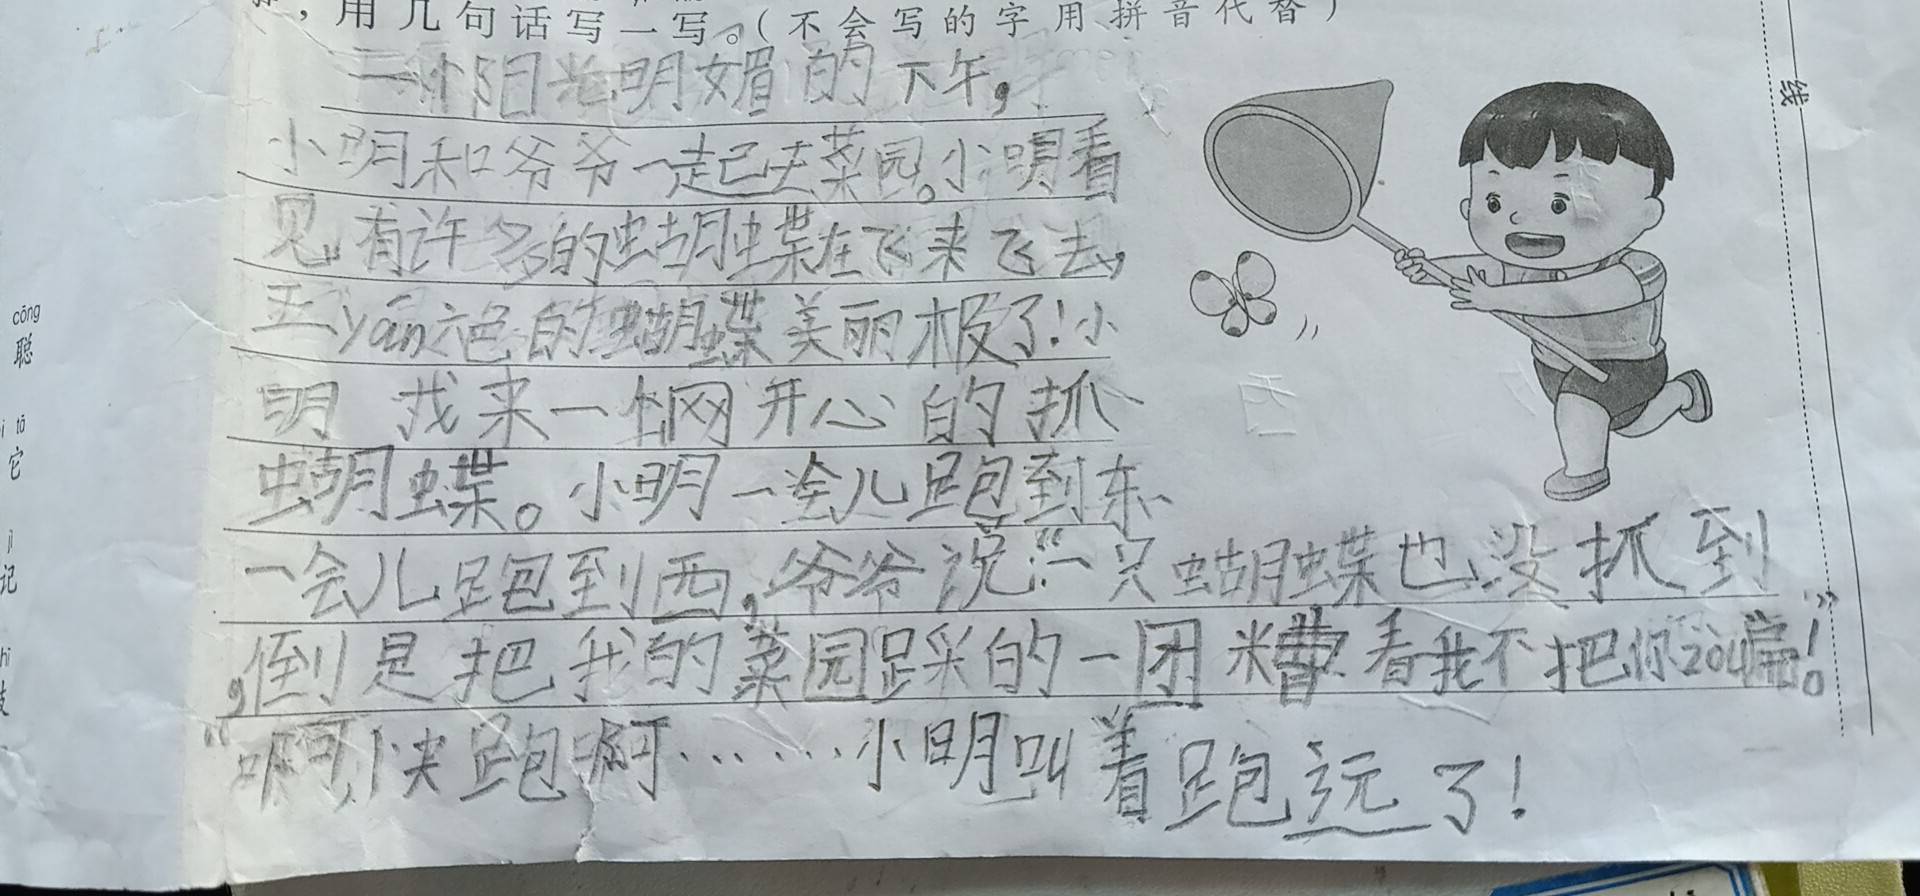 用几句话写一写。(不会写的字用拼音代替)
一个阳光明媚的下午,
小明和爷爷一起去菜园。小明看
见,有许多的蝴蝶在飞来飞去,
五yán六色的蝴蝶美丽极了!小
明 找来一个网开心的抓
蝴蝶。小明一会儿跑到东、
一会儿跑到西,爷爷说:“一只蝴蝶也没抓到
,倒是把我的菜园踩的一团糟看我不把你zou扁!”
“啊,快跑啊……小明叫着跑远了!
线
cōng
聪
tā
它
jì
记